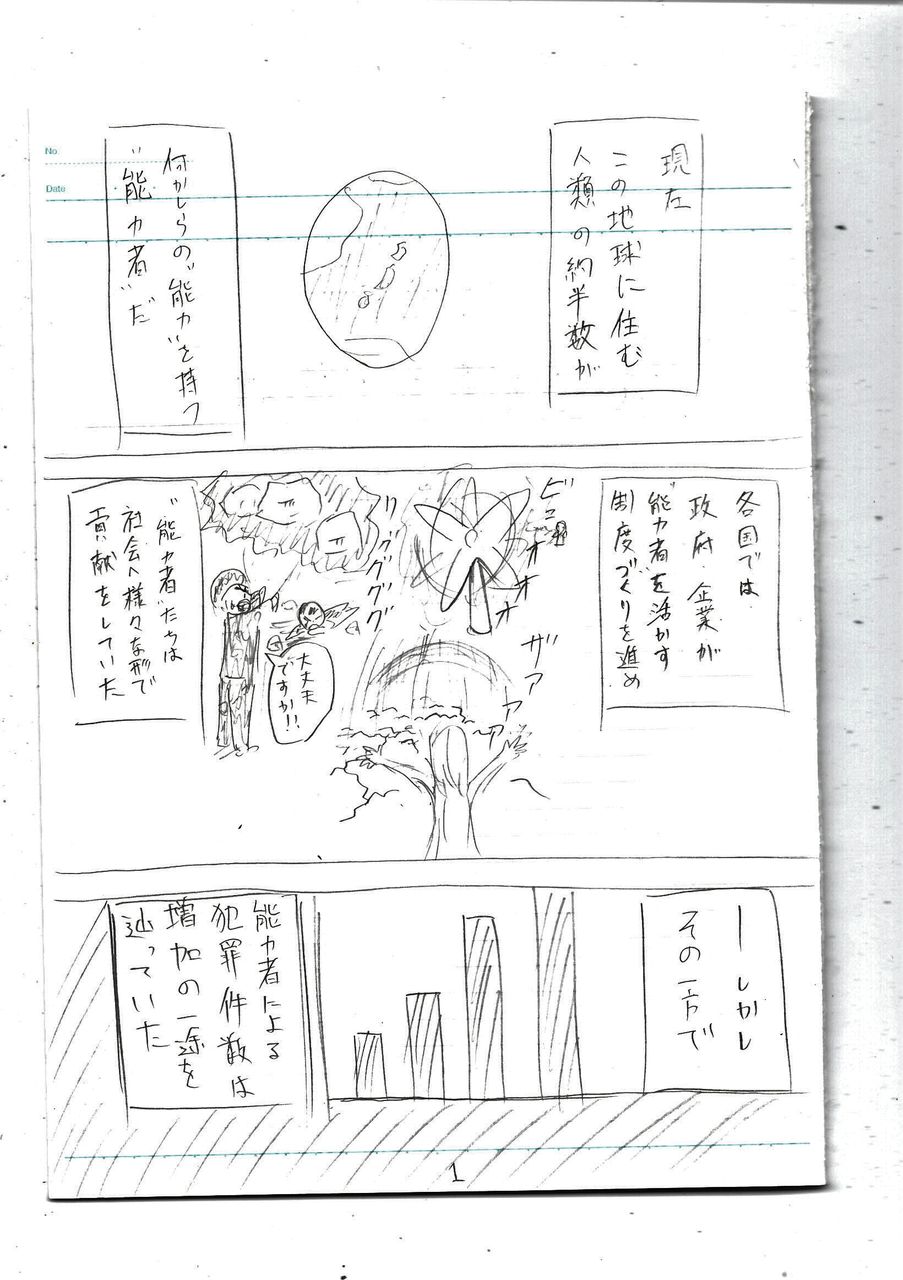 No.
Date
現在
この地球に住む
人類の約半数が
何かしらの"能力"を持つ
"能力者"だ
各国では
政府・企業が
"能力者"を活かす
制度づくりを進め
ビュオオオオ
ザアアアア
リググググ
大丈夫
ですか!!
"能力者"たちは
社会へ様々な形で
貢献をしていた
―しかし
その一方で
能力者による
犯罪件数は
増加の一途を
辿っていた
1